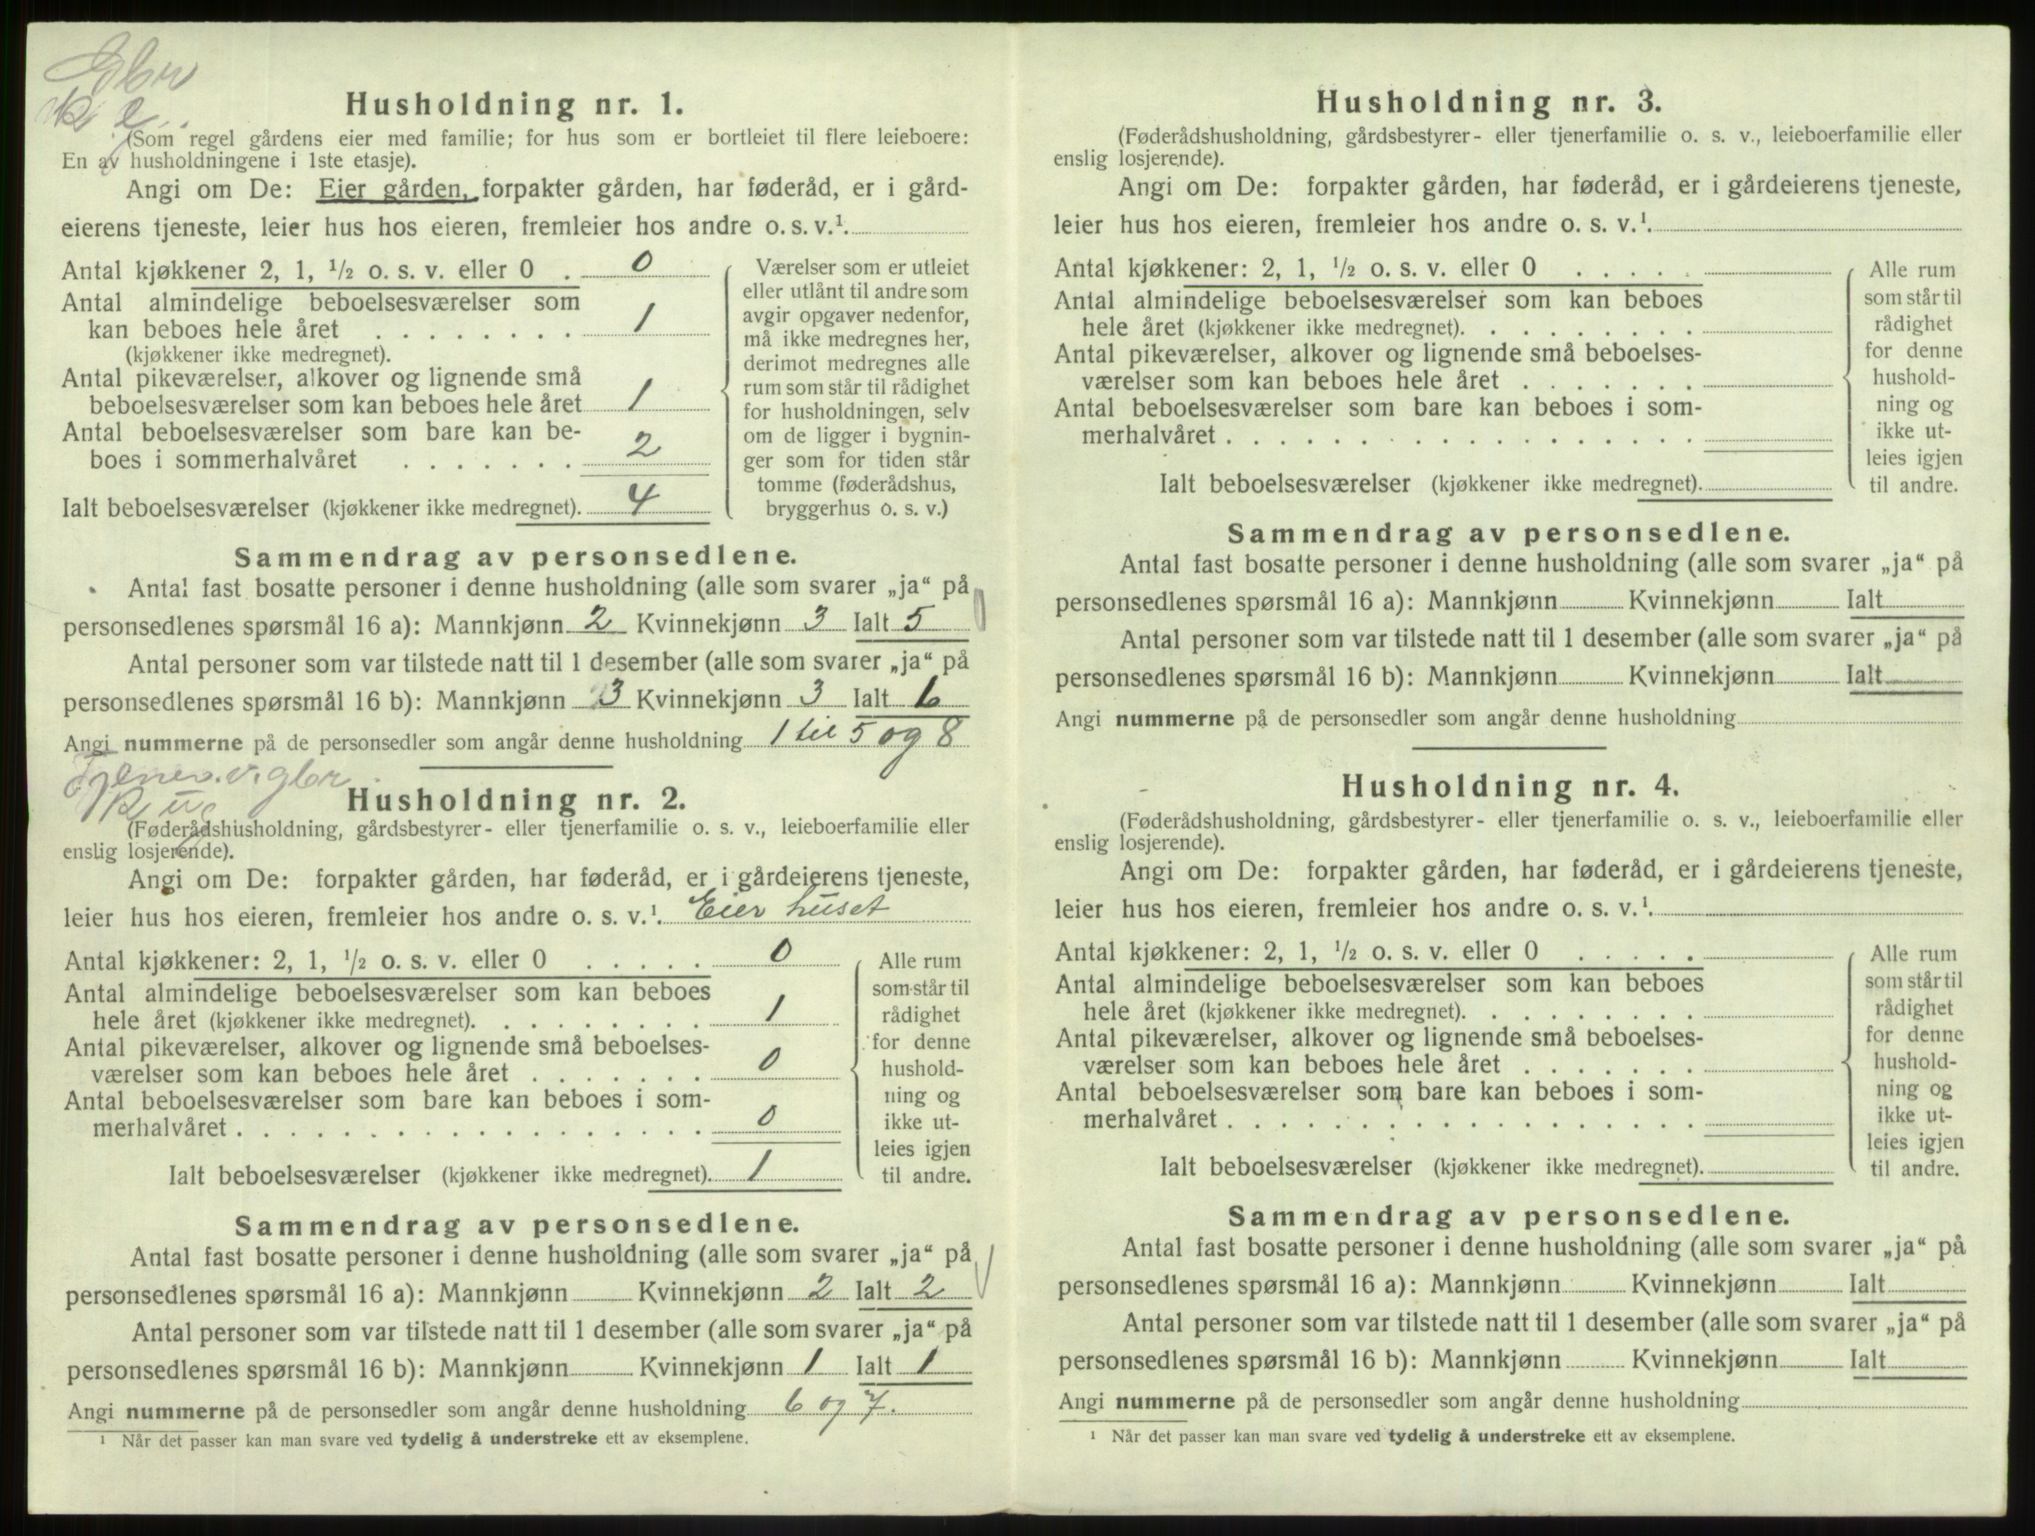 Gbr
Husholdning nr. 1.
(Som regel gårdens eier med familie; for hus som er bortleiet til flere leieboere:
En av husholdningene i 1ste etasje).
Angi om De: Eier gården, forpakter gården, har føderåd, er i gård-
eierens tjeneste, leier hus hos eieren, fremleier hos andre o. s. v.¹.
Antal kjøkkener 2, 1, ½ o. s. v. eller 0 . 0
Antal almindelige beboelsesværelser som
kan beboes hele året . . . . . . . . 1
(kjøkkener ikke medregnet).
Antal pikeværelser, alkover og lignende små
beboelsesværelser som kan beboes hele året 1
Antal beboelsesværelser som bare kan be-
boes i sommerhalvåret . . . . . . . 2
Ialt beboelsesværelser (kjøkkener ikke medregnet). 4
Værelser som er utleiet
eller utlånt til andre som
avgir opgaver nedenfor,
må ikke medregnes her,
derimot medregnes alle
rum som står til rådighet
for husholdningen, selv
om de ligger i bygnin-
ger som for tiden står
tomme (føderådshus,
bryggerhus o. s. v.)
Sammendrag av personsedlene.
Antal fast bosatte personer i denne husholdning (alle som svarer „ja“ på
personsedlenes spørsmål 16 a): Mannkjønn 2 Kvinnekjønn 3 Ialt 5
Antal personer som var tilstede natt til 1 desember (alle som svarer „ja“ på
personsedlenes spørsmål 16 b): Mannkjønn 3 Kvinnekjønn 3 Ialt 6
Angi nummerne på de personsedler som angår denne husholdning 1 til 5 og 8
Tjener v. gbr.
Husholdning nr. 2.
(Føderådshusholdning, gårdsbestyrer- eller tjenerfamilie o. s. v., leieboerfamilie eller
enslig losjerende).
Angi om De: forpakter gården, har føderåd, er i gårdeierens tjeneste,
leier hus hos eieren, fremleier hos andre o. s. v.¹. Eier huset
Antal kjøkkener: 2, 1, ½ o. s. v. eller 0 . . . . . 0
Antal almindelige beboelsesværelser som kan beboes
hele året (kjøkkener ikke medregnet). . . . . . . . . 1
Antal pikeværelser, alkover og lignende små beboelses-
værelser som kan beboes hele året . . . . . . . 0
Antal beboelsesværelser som bare kan beboes i som-
merhalvåret . . . . . . . . . . . . . . . . . . 0
Ialt beboelsesværelser (kjøkkener ikke medregnet). 1
Alle rum
som står til
rådighet
for denne
hushold-
ning og
ikke ut-
leies igjen
til andre.
Sammendrag av personsedlene.
Antal fast bosatte personer i denne husholdning (alle som svarer „ja“ på
personsedlenes spørsmål 16 a): Mannkjønn Kvinnekjønn 2 Ialt 2
Antal personer som var tilstede natt til 1 desember (alle som svarer „ja“ på
personsedlenes spørsmål 16 b): Mannkjønn Kvinnekjønn 1 Ialt 1
Angi nummerne på de personsedler som angår denne husholdning 6 og 7.
¹ Når det passer kan man svare ved tydelig å understreke ett av eksemplene.
Husholdning nr. 3.
(Føderådshusholdning, gårdsbestyrer- eller tjenerfamilie o. s. v., leieboerfamilie eller
enslig losjerende).
Angi om De: forpakter gården, har føderåd, er i gårdeierens tjeneste,
leier hus hos eieren, fremleier hos andre o. s. v.¹.
Antal kjøkkener: 2, 1, ½ o. s. v. eller 0 . . . . .
Antal almindelige beboelsesværelser som kan beboes
hele året (kjøkkener ikke medregnet). . . . . . . . .
Antal pikeværelser, alkover og lignende små beboelses-
værelser som kan beboes hele året . . . . . . .
Antal beboelsesværelser som bare kan beboes i som-
merhalvåret . . . . . . . . . . . . . . . . . .
Ialt beboelsesværelser (kjøkkener ikke medregnet).
Alle rum
som står til
rådighet
for denne
hushold-
ning og
ikke ut-
leies igjen
til andre.
Sammendrag av personsedlene.
Antal fast bosatte personer i denne husholdning (alle som svarer „ja“ på
personsedlenes spørsmål 16 a): Mannkjønn Kvinnekjønn Ialt
Antal personer som var tilstede natt til 1 desember (alle som svarer „ja“ på
personsedlenes spørsmål 16 b): Mannkjønn Kvinnekjønn Ialt
Angi nummerne på de personsedler som angår denne husholdning
Husholdning nr. 4.
(Føderådshusholdning, gårdsbestyrer- eller tjenerfamilie o. s. v., leieboerfamilie eller
enslig losjerende).
Angi om De: forpakter gården, har føderåd, er i gårdeierens tjeneste,
leier hus hos eieren, fremleier hos andre o. s. v.¹.
Antal kjøkkener: 2, 1, ½ o. s. v. eller 0 . . . . .
Antal almindelige beboelsesværelser som kan beboes
hele året (kjøkkener ikke medregnet). . . . . . . . .
Antal pikeværelser, alkover og lignende små beboelses-
værelser som kan beboes hele året . . . . . . .
Antal beboelsesværelser som bare kan beboes i som-
merhalvåret . . . . . . . . . . . . . . . . . .
Ialt beboelsesværelser (kjøkkener ikke medregnet).
Alle rum
som står til
rådighet
for denne
hushold-
ning og
ikke ut-
leies igjen
til andre.
Sammendrag av personsedlene.
Antal fast bosatte personer i denne husholdning (alle som svarer „ja“ på
personsedlenes spørsmål 16 a): Mannkjønn Kvinnekjønn Ialt
Antal personer som var tilstede natt til 1 desember (alle som svarer „ja“ på
personsedlenes spørsmål 16 b): Mannkjønn Kvinnekjønn Ialt
Angi nummerne på de personsedler som angår denne husholdning
¹ Når det passer kan man svare ved tydelig å understreke ett av eksemplene.